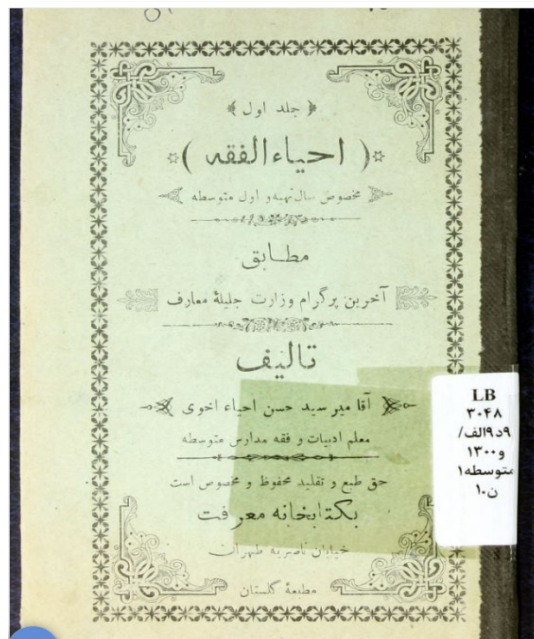 جلد اول
( احیاء الفقه )
مخصوص سال تهیه و اول متوسطه
مطابق
آخرین پرگرام وزارت جلیلهٔ معارف
تالیف
آقا میر سید حسن احیاء اخوی
معلم ادبیات و فقه مدارس متوسطه
حق طبع و تقلید محفوظ و مخصوص است
بکتابخانه معرفت
خیابان ناصریه طهران
مطبعهٔ گلستان
LB
۳۰۴۸
/۹د۹الف
و۱۳۰۰
متوسطه۱
ن۱۰